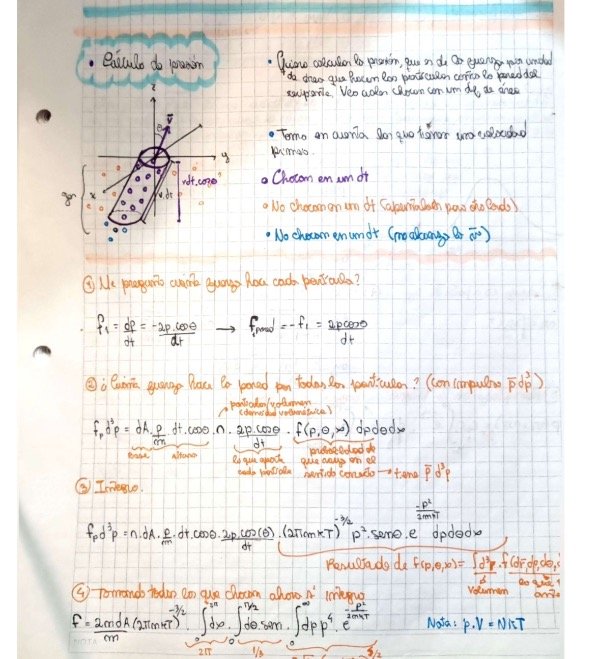 • Cálculo de presión
• Quiero calcular la presión, que es de la fuerza por unidad
de área que hacen las partículas contra la pared del
recipiente. Veo cuales chocan con un dA de área
• Tomo en cuenta las que tienen una velocidad
• Chocan en un dt
• No chocan en un dt (apuntaban para otro lado)
• No chocan en un dt (no alcanza la v̄)
z
θ
v̄
y
x
gas
v.dt
vdt.cosθ
① Me pregunto cuánta fuerza hace cada partícula?
f₁ = dp/dt = -2p.cosθ/dt → f pared = -f₁ = 2pcosθ/dt
② ¿Cuánta fuerza hace la pared por todas las partículas? (con impulso p̄ d³p)
partículas/volumen
(densidad volumétrica)
f_p d³p = dA. p/m . dt.cosθ . n . 2p.cosθ/dt . f(p,θ,α) dpdθdα
base altura lo que aporta cada partícula probabilidad de que vaya en el sentido correcto → tiene p̄ d³p
③ Integro.
f_p d³p = n.dA. p/m .dt.cosθ. 2p cos(θ)/dt . (2πmKT)^-3/2 p².senθ.e^(-p²/2mKT) dpdθdα
Resultado de f(p,θ,α) = ∫d³p.
volumen
④ Tomando todas las que chocan ahora sí integro
f = 2ndA/m (2πmKT)^-3/2 . ∫₀^2π dα. ∫₀^π/2 dθ.sen . ∫₀^∞ dp p⁴. e^(-p²/2mKT)
2π 1/3
Nota: p.V = NKT
NOTA